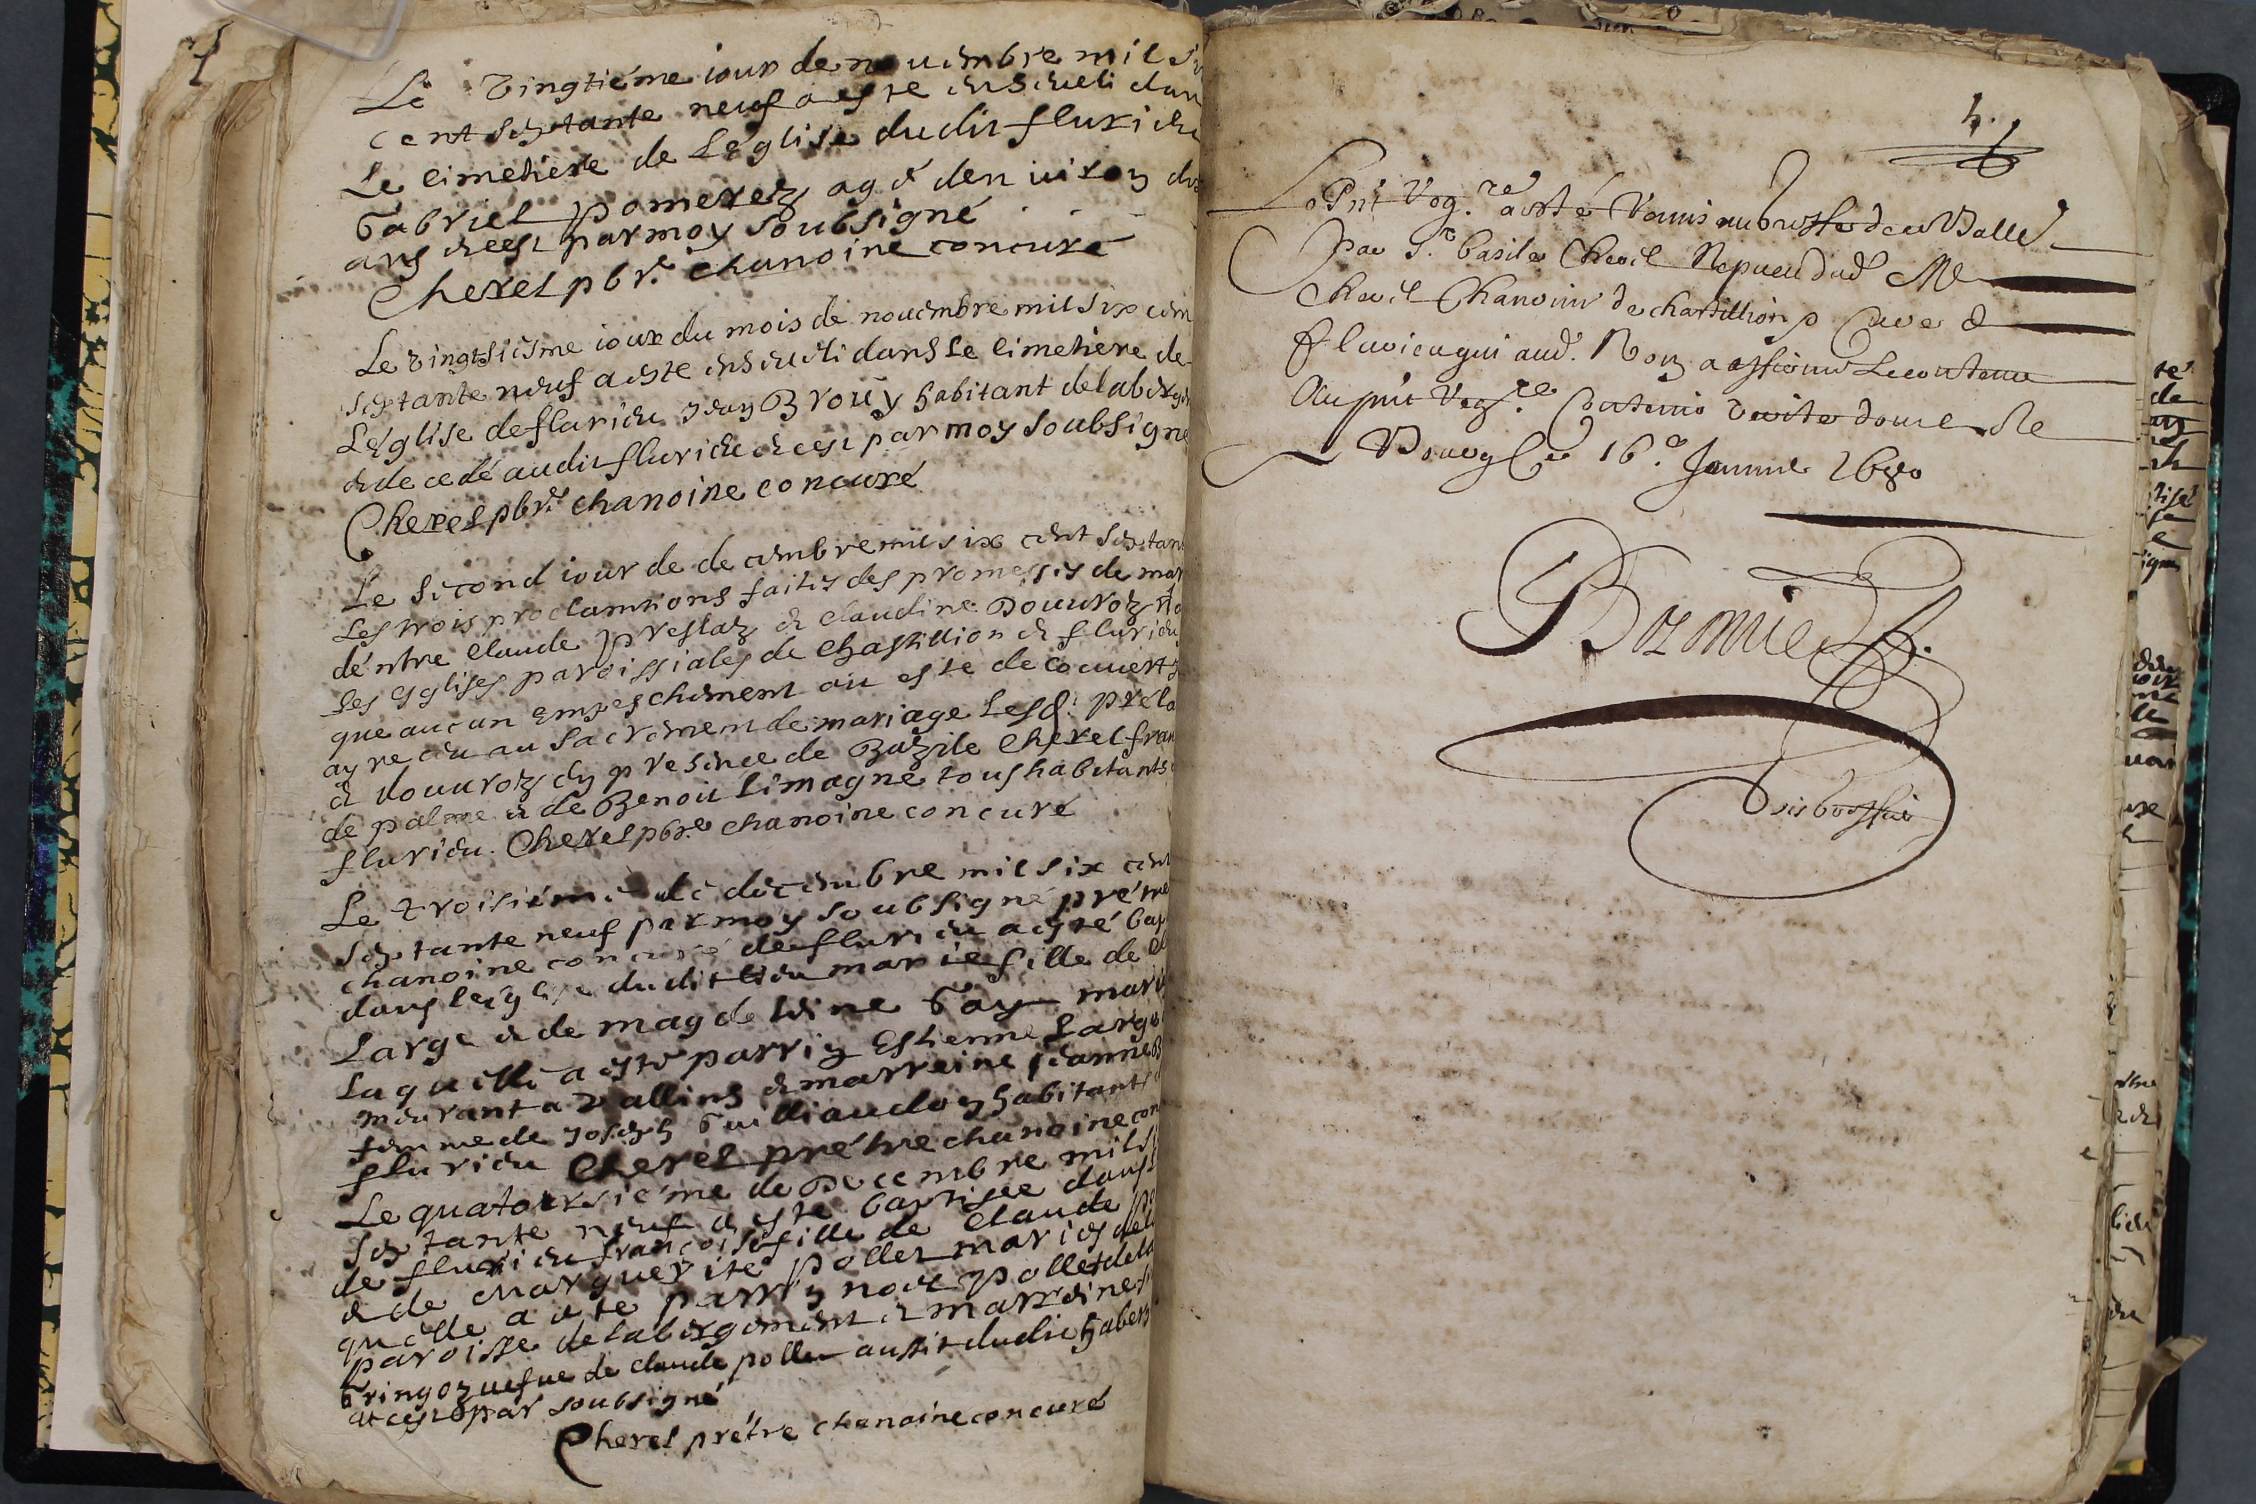 Le vingtiéme iour de nouembre mil si
cent septante neuf a este enseueli dan
Le cimetiere de L'église dudit flurieu
Gabriel pomerez agé den uiron de
ans et cest par moy soubsigné
Cherel pbre chanoine concuré
Le vingtsiesme iour du mois de nouembre mil six cen
septante neuf a este enseueli dans le cimetiere de
L'église de flurieu Jean Brouy habitant de laberge
et decedé audit flurieu et cest par moy soubsigne
Cherel pbre chanoine concuré
Le second iour de decembre mil six cent septan
Les trois proclamtions faites des promesses de mar
déntre Claude preslaz et claudine Douuroz
Les esglises paroissiales de chastillion et flurieu
que aucun empeschement aii este decouuert
ay receu au sacrement de mariage Lesd. préla
et douuroz en présence de Bazile Cherel fran
de palme et de Benoit Limagne tous habitants
flurieu. Cherel pbre chanoine concuré
Le troisiéme de décembre mil six cent
septante neuf par moy soubsigné prétre
chanoine concuré de flurieu a esté bap
dans leglise dudit lieu marie fille de
Large et de magdeleine Gay marie
Laquelle a este parrin Estienne Large
meurant a vallins et marreine jeanne
femme de Joseph Guilliaudon habitants
flurieu Cherel prétre chanoine con
Le quatoursiéme de Decembre mil s
septante neuf a este baptisee dans
de flurieu françoise fille de Claude
et de marguerite pollet maries
quelle a ete parrin noel pollet de la
paroisse de labergement et marreine
Gringoz uefue de claude pollet aussit dudit habers
et cest par soubsigné
Cherel prétre chanoine concuré
4.
Le Pnt Reg.re a esté Remis au Greffe de ce Balle
par S.r basile Cherel Nepueu dud M
Cherel Chanoine de chastillion Cure d
flurieu qui aud. Nom a affirmé Le contenu
Au pnt Reg.re Contenir verité dont acte
Bourg Ce 16.e Janvie 1680
Bizonnier